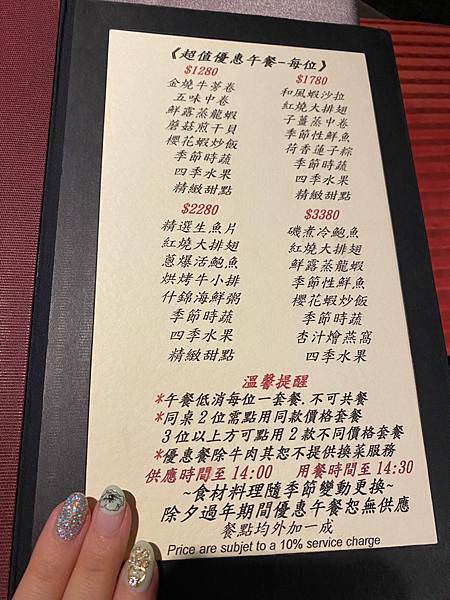 《超值優惠午餐-每位》
$1280
金燒牛蒡卷
五味中卷
鮮露蒸龍蝦
蘑菇煎干貝
櫻花蝦炒飯
季節時蔬
四季水果
精緻甜點
$1780
和風蝦沙拉
紅燒大排翅
子薑蒸中卷
季節性鮮魚
荷香蓮子粽
季節時蔬
四季水果
精緻甜點
$2280
精選生魚片
紅燒大排翅
蔥爆活鮑魚
烘烤牛小排
什錦海鮮粥
季節時蔬
四季水果
精緻甜點
$3380
磯煮冷鮑魚
紅燒大排翅
鮮露蒸龍蝦
季節性鮮魚
櫻花蝦炒飯
季節時蔬
杏汁燴燕窩
四季水果
溫馨提醒
*午餐低消每位一套餐.不可共餐
*同桌2位需點用同款價格套餐
3位以上方可點用2款不同價格套餐
*優惠餐除牛肉其恕不提供換菜服務
供應時間至14:00 用餐時間至14:30
~食材料理隨季節變動更換~
除夕過年期間優惠午餐恕無供應
餐點均外加一成
Price are subjet to a 10% service charge